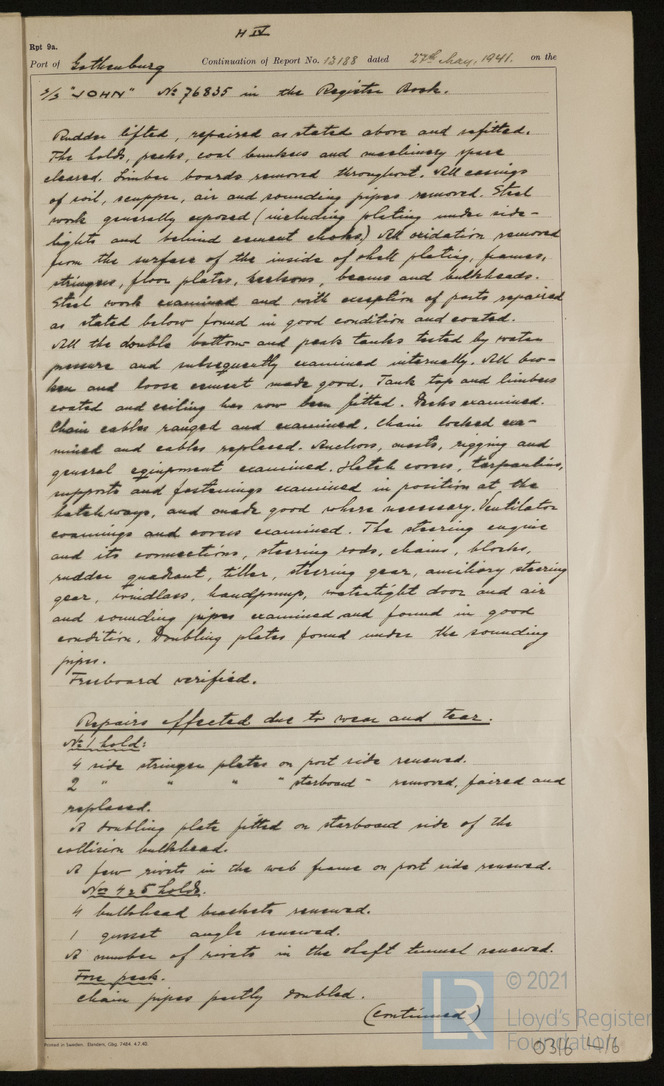 H IV
Rpt 9a.
Port of Gothenburg Continuation of Report No. 13188 dated 27th May, 1941. on the
s/s "JOHN" No 76835 in the Register Book.
Rudder lifted, repaired as stated above and refitted.
The holds, peaks, coal bunkers and machinery space
cleared. Limber boards removed throughout. All casings
of soil, scupper, air and sounding pipes removed. Steel
work generally exposed (including plating under side-
lights and behind cement chocks.) All oxidation removed
from the surface of the inside of shell plating, frames,
stringers, floor plates, keelsons, beams and bulkheads.
Steel work examined and with exception of parts repaired
as stated below found in good condition and coated.
All the double bottom and peak tanks tested by water
pressure and subsequently examined internally. All bro-
ken and loose cement made good. Tank top and limbers
coated and ceiling has now been fitted. Decks examined.
Chain cables ranged and examined. Chain locked exa-
mined and cables replaced. Anchors, masts, rigging and
general equipment examined. Hatch covers, tarpaulins,
supports and fastenings examined in position at the
hatchways, and made good where necessary. Ventilator
coamings and covers examined. The steering engine
and its connections, steering rods, chains, blocks,
rudder quadrant, tiller, steering gear, auxiliary steering
gear, windlass, handpump, watertight door and air
and sounding pipes examined and found in good
condition. Doubling plates found under the sounding
pipes.
Freeboard verified.
Repairs effected due to wear and tear:
No 1 hold:
4 side stringer plates on port side renewed.
2 " " " " starboard " removed, faired and
replaced.
A doubling plate fitted on starboard side of the
collision bulkhead.
A few rivets in the web frame on port side renewed.
Nos 4 & 5 holds.
4 bulkhead brackets renewed.
1 gusset angle renewed.
A number of rivets in the shaft tunnel renewed.
Fore peak.
Chain pipes partly doubled.
(continued)
© 2021
LR
Lloyd's Register
Foundation
0316 4/6
Printed in Sweden. Elanders, Gbg. 7484. 4.7.40.